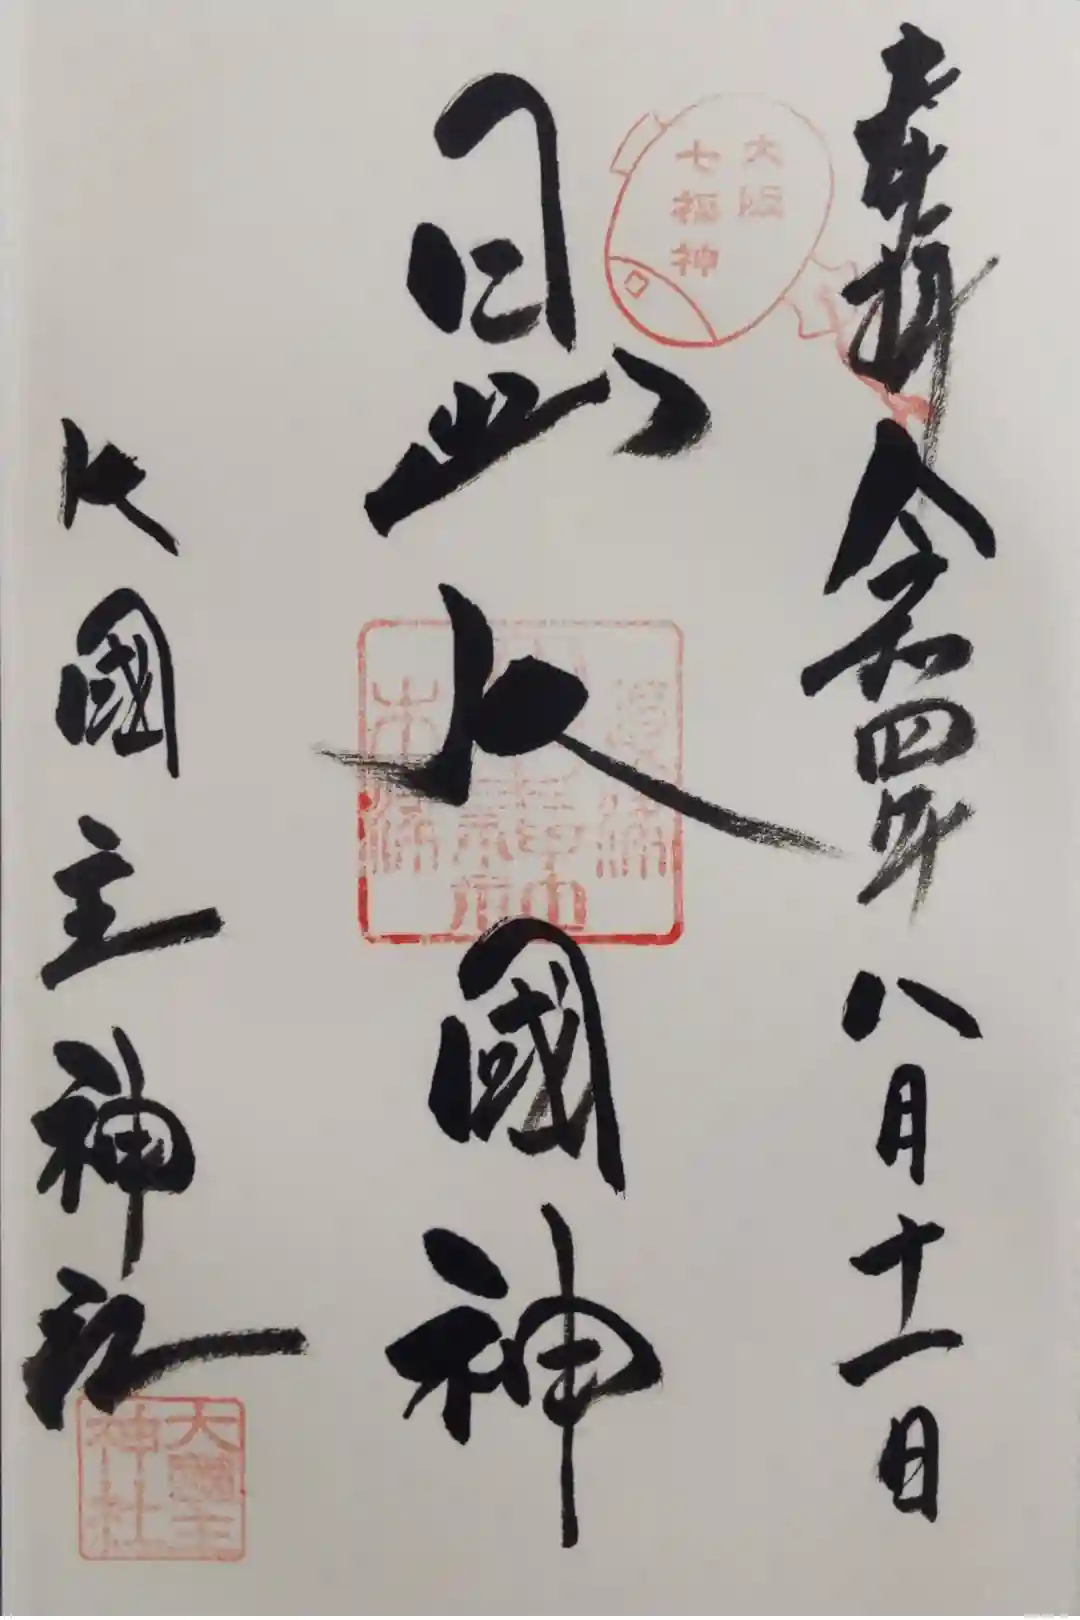 奉拝 令和四年八月十一日
大阪
七福神
日出大國神
大國主神社
大國主
神社